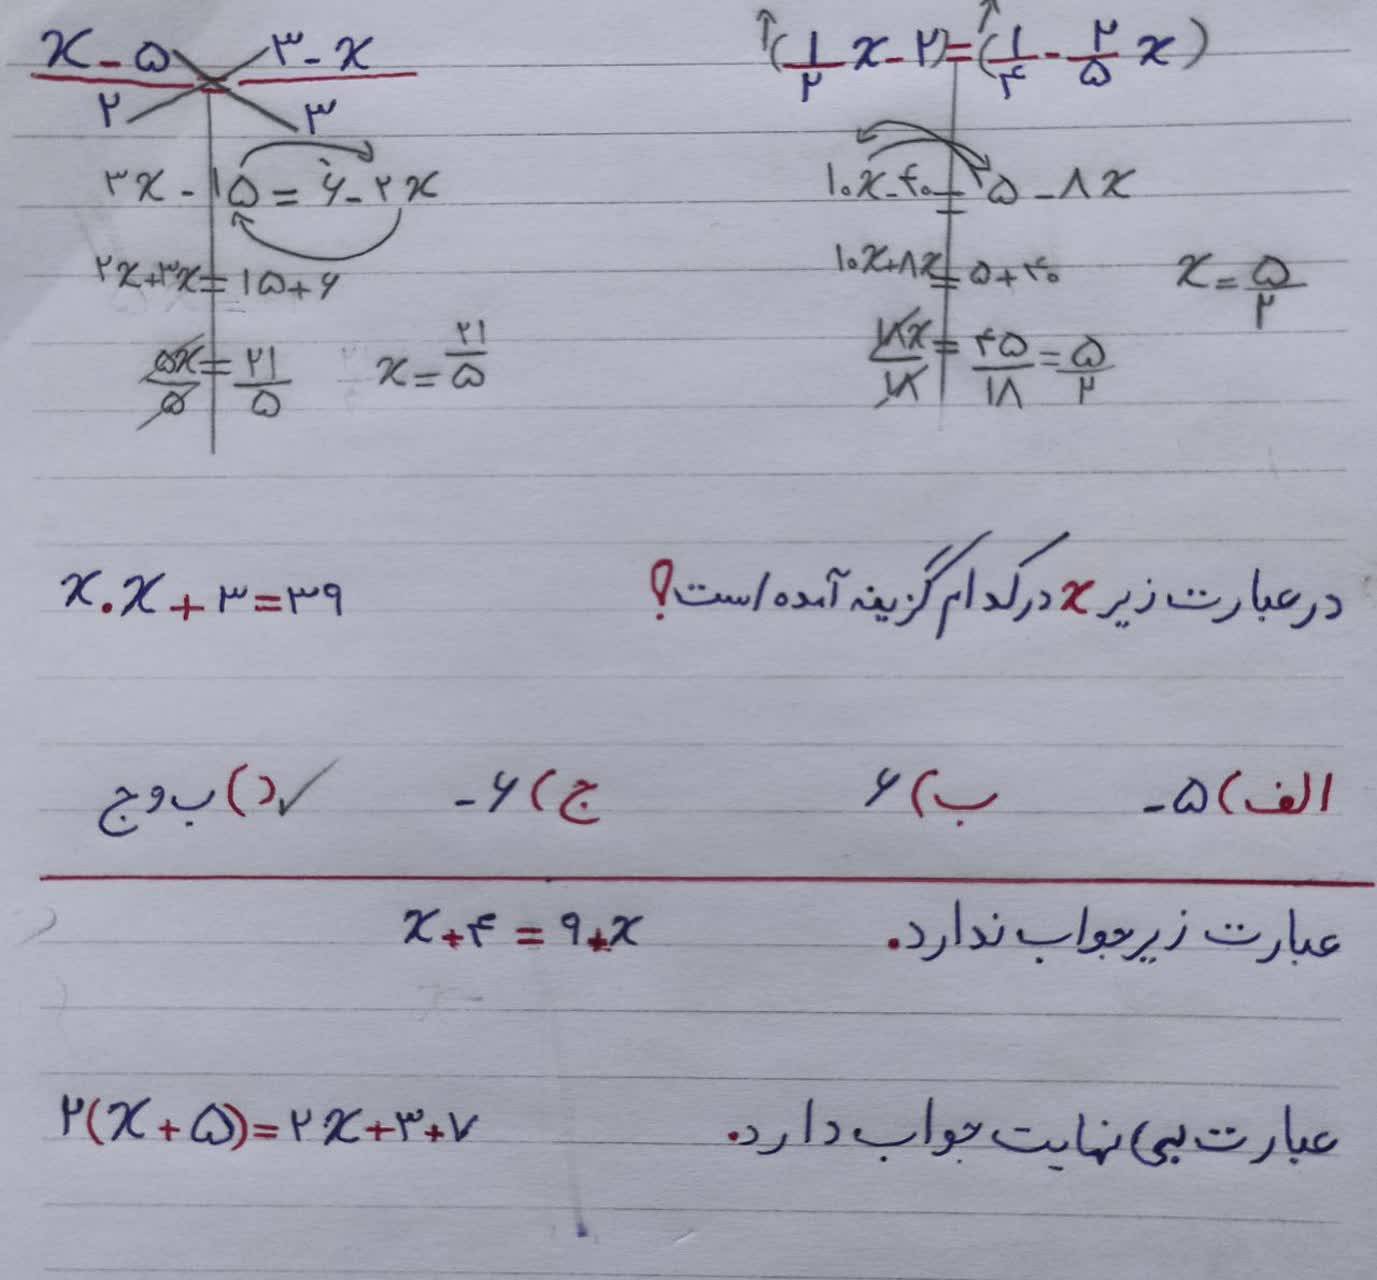 (۱/۲ x - ۲) = (۱/۴ - ۲/۵ x)
۱۰x - ۴۰ = ۵ - ۸x
۱۰x + ۸x = ۵ + ۴۰
x = ۵/۲
۱۸x/۱۸ = ۴۵/۱۸ = ۵/۲
x - ۵/۲ = ۳ - x/۳
۳x - ۱۵ = ۶ - ۲x
۲x + ۳x = ۱۵ + ۶
۵x/۵ = ۲۱/۵
x = ۲۱/۵
در عبارت زیر x در کدام گزینه آمده است؟ x . x + ۳ = ۳۹
الف) ۵- ب) ۶ ج) ۶- د) ب و ج ✓
عبارت زیر جواب ندارد. x + ۴ = ۹ + x
عبارت بی نهایت جواب دارد. ۲(x + ۵) = ۲x + ۳ + ۷